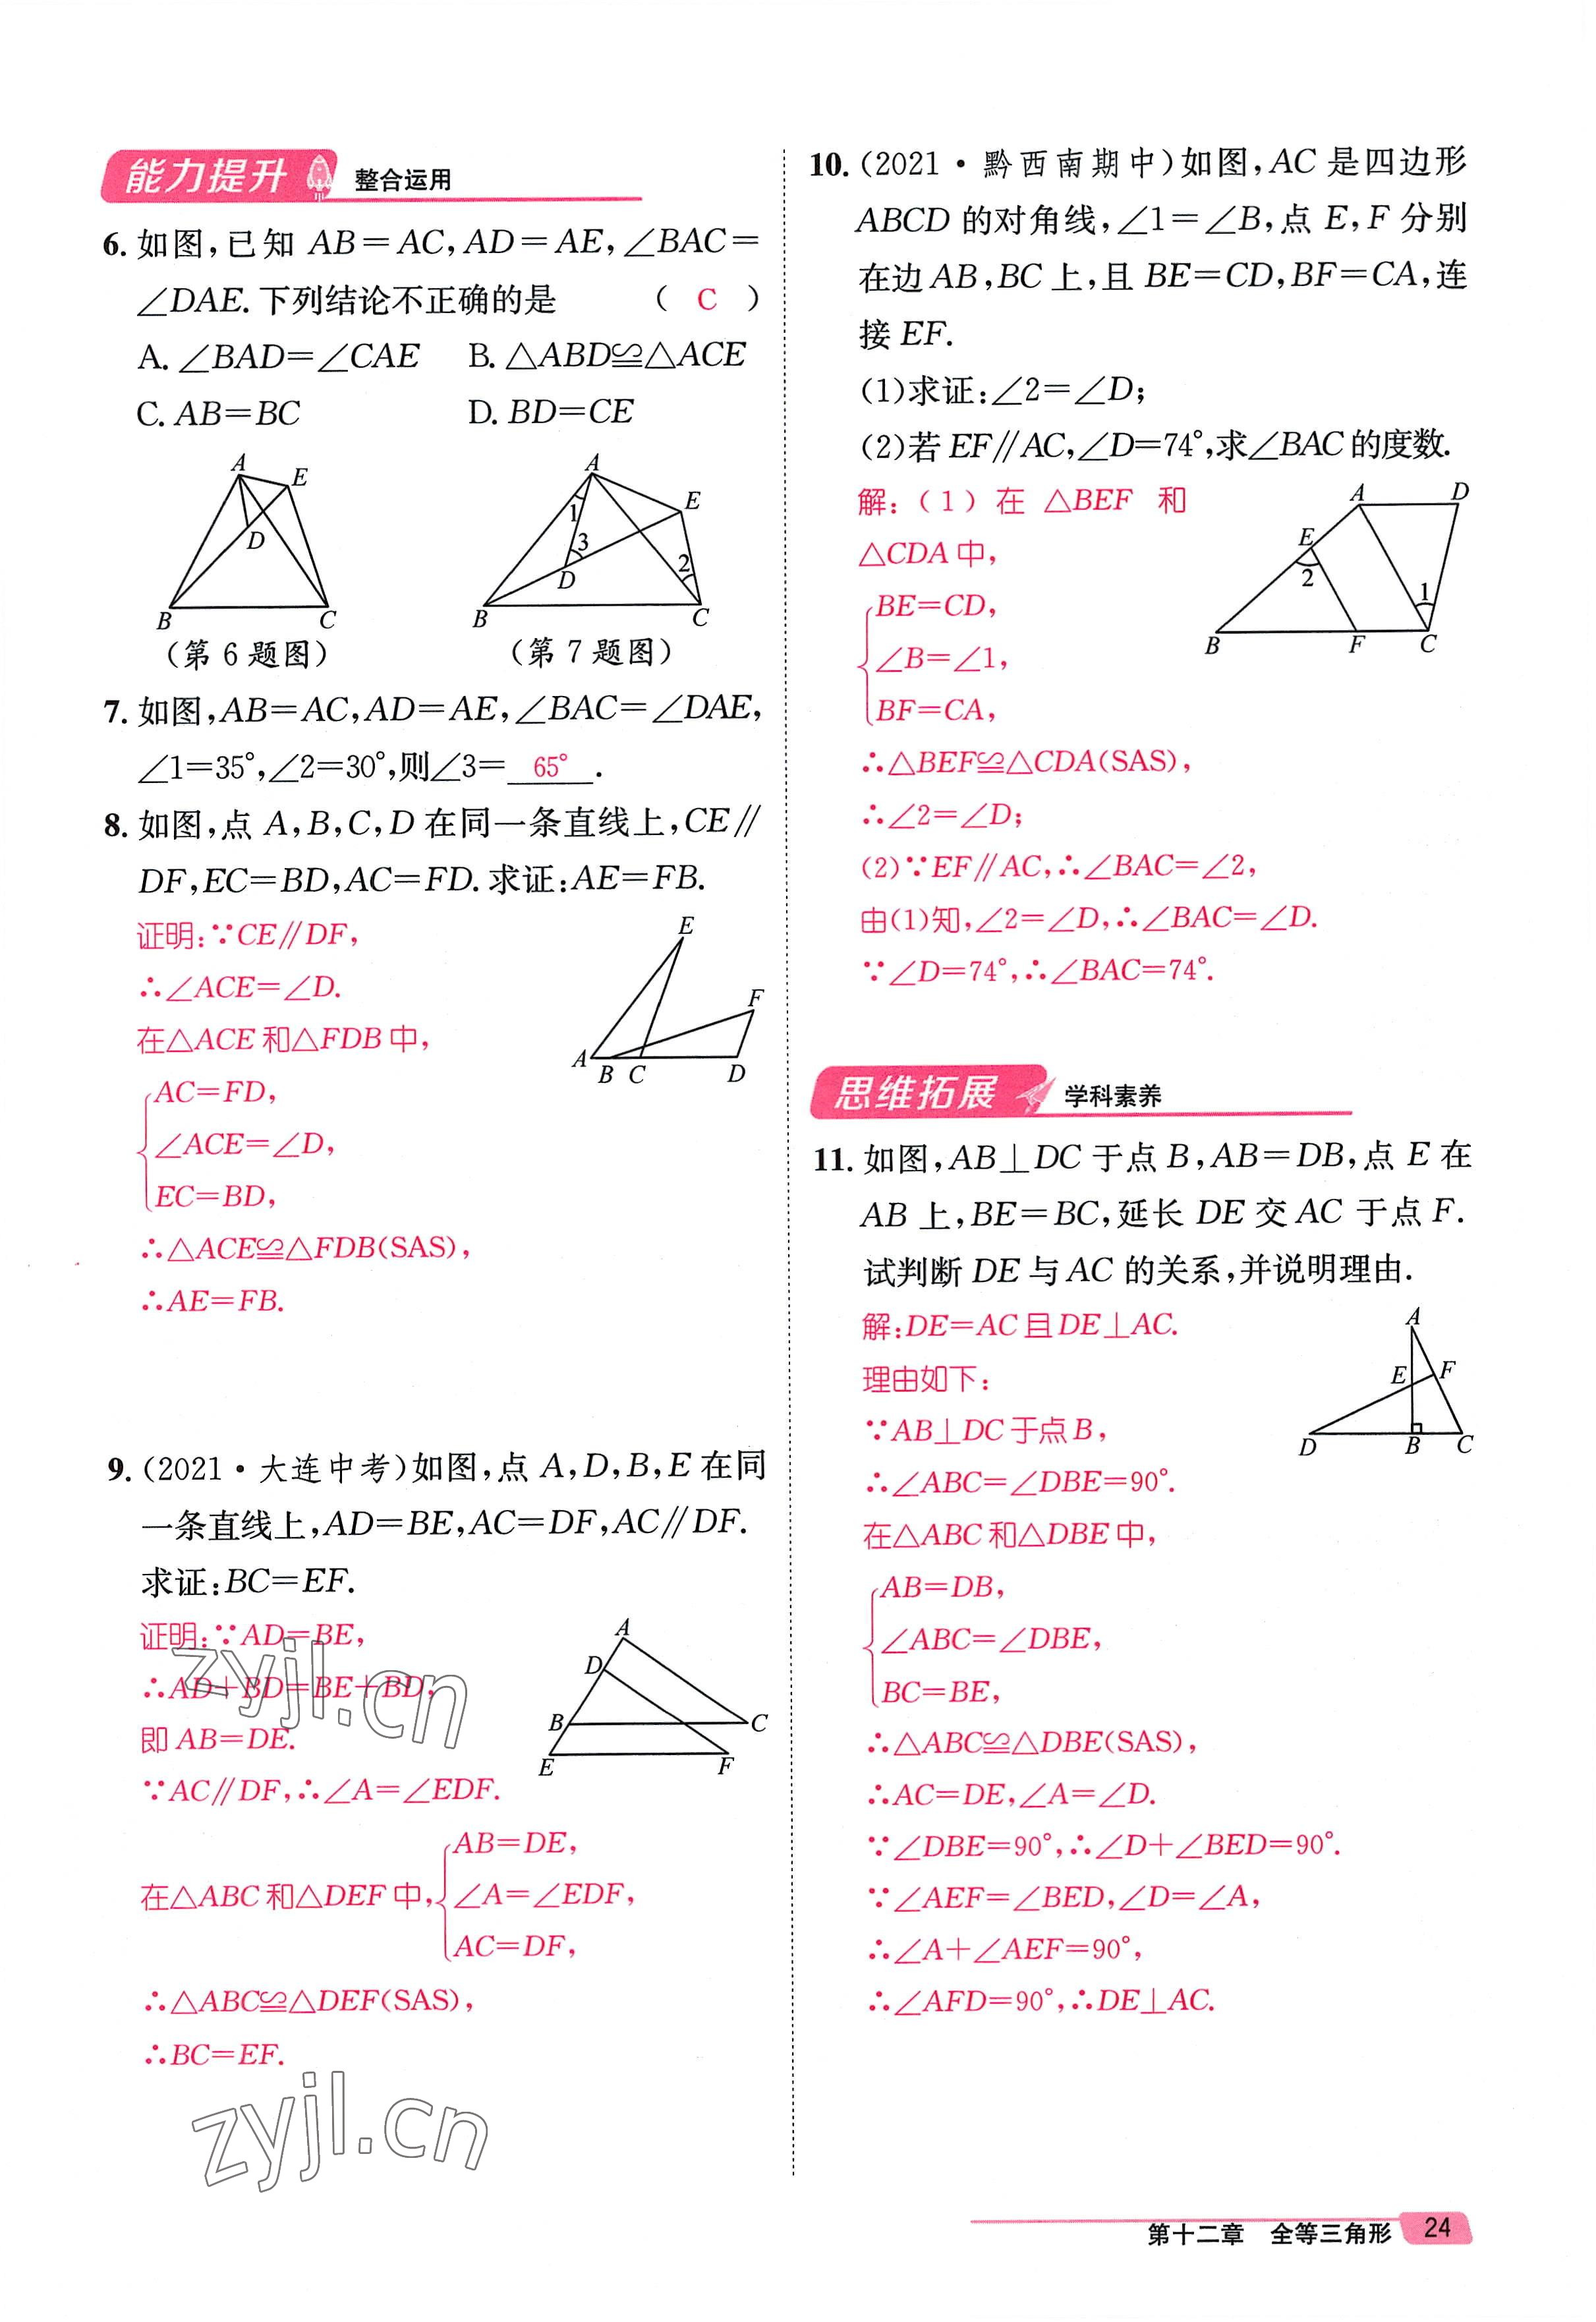 能力提升 整合运用
6. 如图,已知 AB=AC,AD=AE,∠BAC=
∠DAE. 下列结论不正确的是 ( C )
A. ∠BAD=∠CAE B. △ABD≌△ACE
C. AB=BC D. BD=CE
A E D B C
(第 6 题图)
A E 1 3 2 D B C
(第 7 题图)
7. 如图,AB=AC,AD=AE,∠BAC=∠DAE,
∠1=35°,∠2=30°,则∠3= 65° .
8. 如图,点 A,B,C,D 在同一条直线上,CE∥
DF,EC=BD,AC=FD. 求证:AE=FB.
证明:∵CE∥DF,
∴∠ACE=∠D.
在△ACE 和△FDB 中,
AC=FD,
∠ACE=∠D,
EC=BD,
∴△ACE≌△FDB(SAS),
∴AE=FB.
E F A B C D
9. (2021·大连中考)如图,点 A,D,B,E 在同
一条直线上,AD=BE,AC=DF,AC∥DF.
求证:BC=EF.
证明:∵AD=BE,
∴AD+BD=BE+BD,
即 AB=DE.
∵AC∥DF,∴∠A=∠EDF.
在△ABC 和△DEF 中,
AB=DE,
∠A=∠EDF,
AC=DF,
∴△ABC≌△DEF(SAS),
∴BC=EF.
A D B C E F
zyjl.cn
zyjl.cn
10. (2021·黔西南期中)如图,AC 是四边形
ABCD 的对角线,∠1=∠B,点 E,F 分别
在边 AB,BC 上,且 BE=CD,BF=CA,连
接 EF.
(1)求证:∠2=∠D;
(2)若 EF∥AC,∠D=74°,求∠BAC 的度数.
解:(1)在 △BEF 和
△CDA 中,
BE=CD,
∠B=∠1,
BF=CA,
∴△BEF≌△CDA(SAS),
∴∠2=∠D;
(2)∵EF∥AC,∴∠BAC=∠2,
由(1)知,∠2=∠D,∴∠BAC=∠D.
∵∠D=74°,∴∠BAC=74°.
A D E 2 1 B F C
思维拓展 学科素养
11. 如图,AB⊥DC 于点 B,AB=DB,点 E 在
AB 上,BE=BC,延长 DE 交 AC 于点 F.
试判断 DE 与 AC 的关系,并说明理由.
解:DE=AC 且 DE⊥AC.
理由如下:
∵AB⊥DC 于点 B,
∴∠ABC=∠DBE=90°.
在△ABC 和△DBE 中,
AB=DB,
∠ABC=∠DBE,
BC=BE,
∴△ABC≌△DBE(SAS),
∴AC=DE,∠A=∠D.
∵∠DBE=90°,∴∠D+∠BED=90°.
∵∠AEF=∠BED,∠D=∠A,
∴∠A+∠AEF=90°,
∴∠AFD=90°,∴DE⊥AC.
A E F D B C
第十二章 全等三角形 24